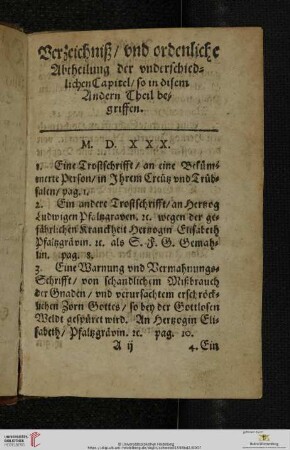 Verzeichniß / vnd ordenliche
Abtheilung der vnderschied-
lichen Capitel / so in disem
Andern Theil be-
griffen.
M. D. XXX.
1. Eine Trostschrifft / an eine Bekům-
merte Person / in Ihrem Creütz vnd Trüb-
salen / pag. 1.
2. Ein andere Trostschrifft / an Hertzog
Ludwigen Pfaltzgraven. ꝛc. wegen der ge-
fährlichen Kranckheit Hertzogin Elisabeth
Pfaltzgrävin. ꝛc. als S. F. G. Gemah-
lin. pag. 8.
3. Eine Warnung vnd Vermahnungs-
Schrifft / von schandlichem Mißbrauch
der Gnaden / vnd verursachtem erschröck-
lichen Zorn Gottes / so bey der Gottlosen
Weldt gespüret wird. An Hertzogin Eli-
sabeth / Pfaltzgrävin. ꝛc. pag. 10.
A ij 4. Ein
© Universitätsbibliothek Heidelberg